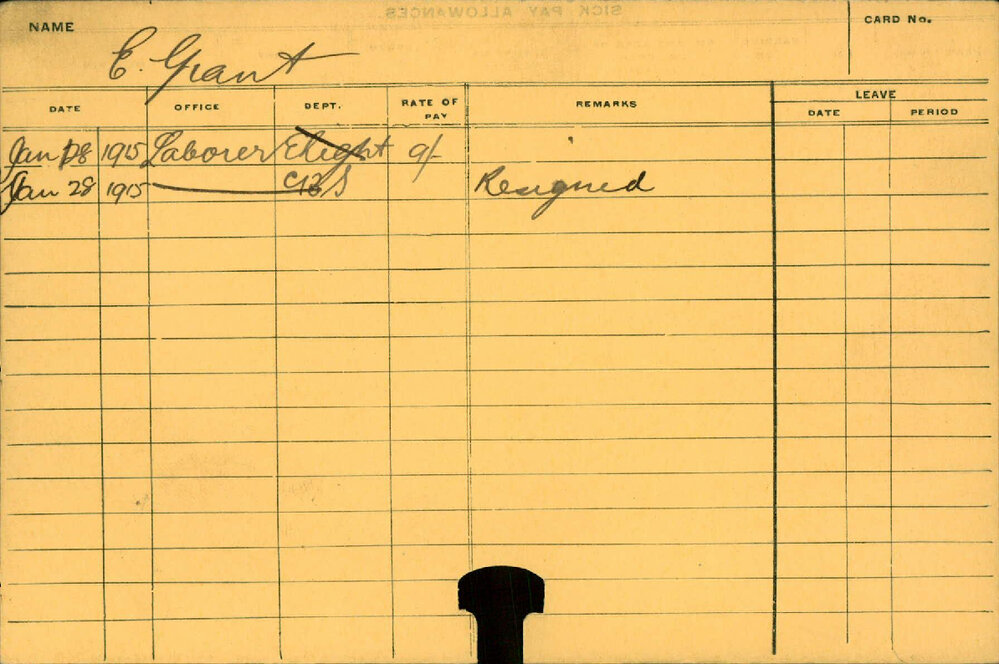 SICK PAY ALLOWANCES
NAME E. Grant CARD No.
DATE OFFICE DEPT. RATE OF PAY REMARKS LEAVE DATE PERIOD
Jan 1915 Laborer Elight 9/-
Jan 28 1915 Resigned